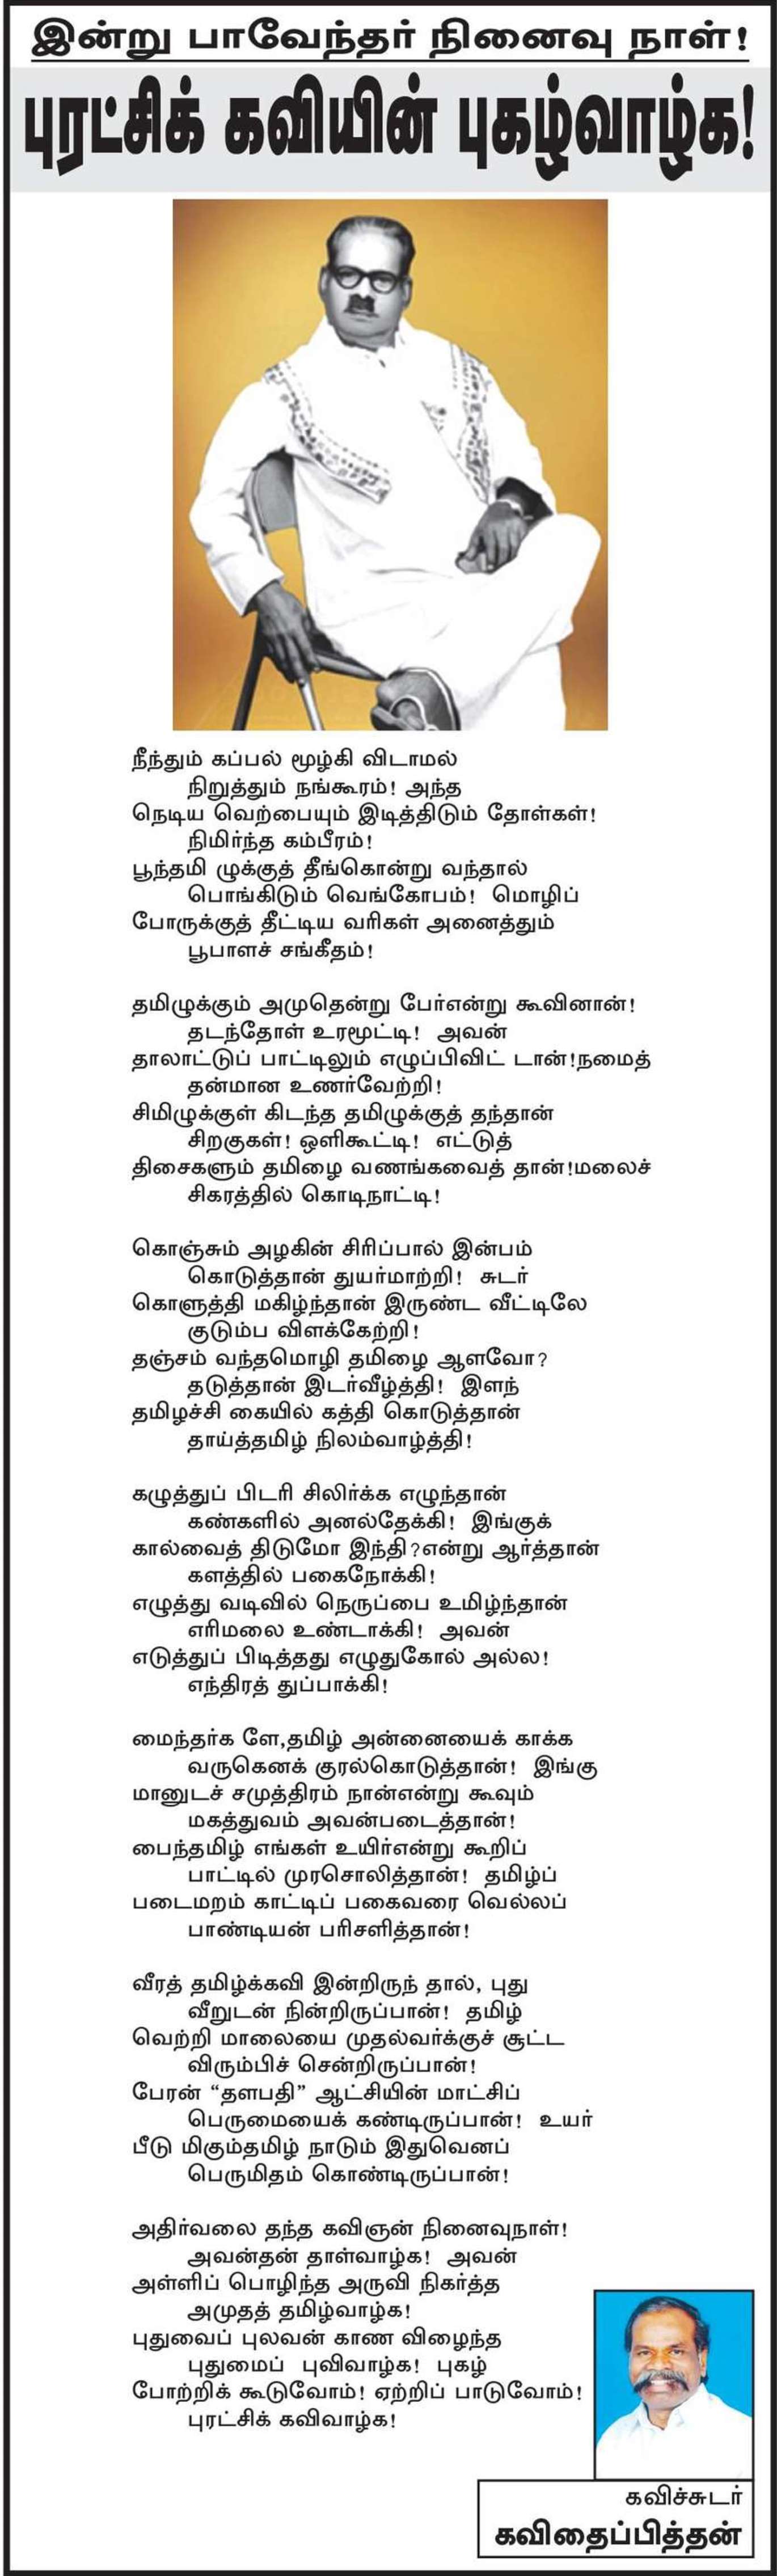 இன்று பாவேந்தர் நினைவு நாள்!
புரட்சிக் கவியின் புகழ்வாழ்க!
நீந்தும் கப்பல் மூழ்கி விடாமல்
நிறுத்தும் நங்கூரம்! அந்த
நெடிய வெற்பையும் இடித்திடும் தோள்கள்!
நிமிர்ந்த கம்பீரம்!
பூந்தமி ழுக்குத் தீங்கொன்று வந்தால்
பொங்கிடும் வெங்கோபம்! மொழிப்
போருக்குத் தீட்டிய வரிகள் அனைத்தும்
பூபாளச் சங்கீதம்!
தமிழுக்கும் அமுதென்று பேர்என்று கூவினான்!
தடந்தோள் உரமூட்டி! அவன்
தாலாட்டுப் பாட்டிலும் எழுப்பிவிட் டான்!நமைத்
தன்மான உணர்வேற்றி!
சிமிழுக்குள் கிடந்த தமிழுக்குத் தந்தான்
சிறகுகள்! ஒளிகூட்டி! எட்டுத்
திசைகளும் தமிழை வணங்கவைத் தான்!மலைச்
சிகரத்தில் கொடிநாட்டி!
கொஞ்சும் அழகின் சிரிப்பால் இன்பம்
கொடுத்தான் துயர்மாற்றி! சுடர்
கொளுத்தி மகிழ்ந்தான் இருண்ட வீட்டிலே
குடும்ப விளக்கேற்றி!
தஞ்சம் வந்தமொழி தமிழை ஆளவோ?
தடுத்தான் இடர்வீழ்த்தி! இளந்
தமிழச்சி கையில் கத்தி கொடுத்தான்
தாய்த்தமிழ் நிலம்வாழ்த்தி!
கழுத்துப் பிடரி சிலிர்க்க எழுந்தான்
கண்களில் அனல்தேக்கி! இங்குக்
கால்வைத் திடுமோ இந்தி?என்று ஆர்த்தான்
களத்தில் பகைநோக்கி!
எழுத்து வடிவில் நெருப்பை உமிழ்ந்தான்
எரிமலை உண்டாக்கி! அவன்
எடுத்துப் பிடித்தது எழுதுகோல் அல்ல!
எந்திரத் துப்பாக்கி!
மைந்தர்க ளே,தமிழ் அன்னையைக் காக்க
வருகெனக் குரல்கொடுத்தான்! இங்கு
மானுடச் சமுத்திரம் நான்என்று கூவும்
மகத்துவம் அவன்படைத்தான்!
பைந்தமிழ் எங்கள் உயிர்என்று கூறிப்
பாட்டில் முரசொலித்தான்! தமிழ்ப்
படைமறம் காட்டிப் பகைவரை வெல்லப்
பாண்டியன் பரிசளித்தான்!
வீரத் தமிழ்க்கவி இன்றிருந் தால், புது
வீறுடன் நின்றிருப்பான்! தமிழ்
வெற்றி மாலையை முதல்வர்க்குச் சூட்ட
விரும்பிச் சென்றிருப்பான்!
பேரன் “தளபதி” ஆட்சியின் மாட்சிப்
பெருமையைக் கண்டிருப்பான்! உயர்
பீடு மிகும்தமிழ் நாடும் இதுவெனப்
பெருமிதம் கொண்டிருப்பான்!
அதிர்வலை தந்த கவிஞன் நினைவுநாள்!
அவன்தன் தாள்வாழ்க! அவன்
அள்ளிப் பொழிந்த அருவி நிகர்த்த
அமுதத் தமிழ்வாழ்க!
புதுவைப் புலவன் காண விழைந்த
புதுமைப் புவிவாழ்க! புகழ்
போற்றிக் கூடுவோம்! ஏற்றிப் பாடுவோம்!
புரட்சிக் கவிவாழ்க!
கவிச்சுடர்
கவிதைப்பித்தன்